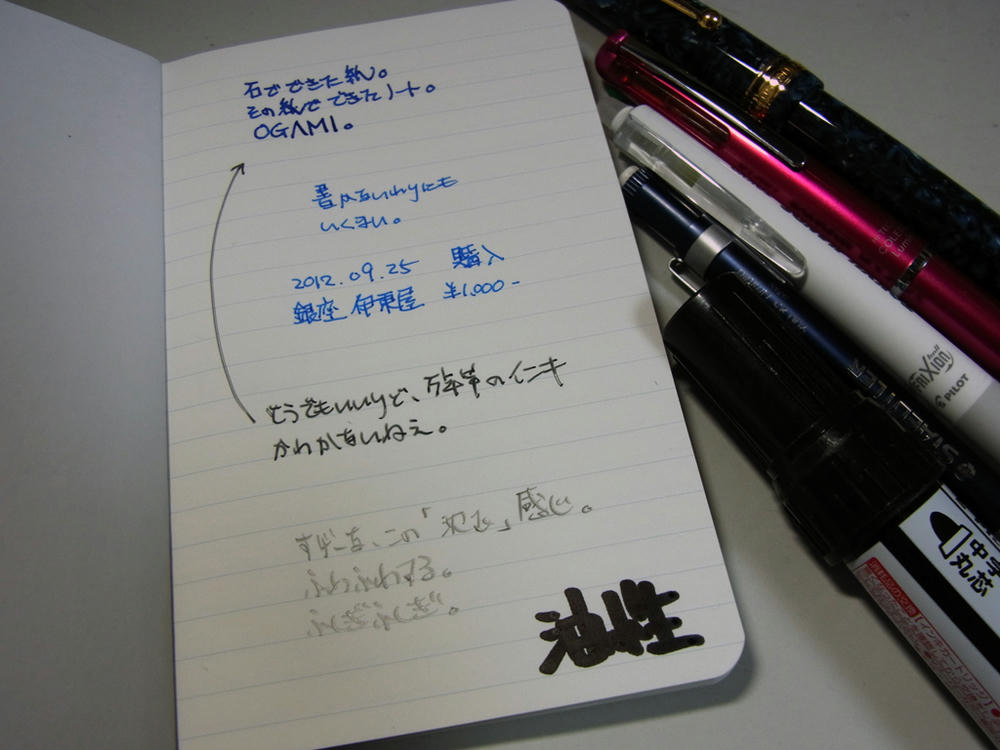 石でできた紙。
その紙でできたノート。
OGAMI。
書かないわけにも
いくまい。
2012.09.25 購入
銀座 伊東屋 ¥1,000-
どうでもいいけど、万年筆のインキ
かわかないねえ。
すげーな、この「」感じ。
ふわふわする。
ふしぎふしぎ。
油性
FRIXION
PILOT
STAEDTLER
中字
丸芯
インキカートリッジ